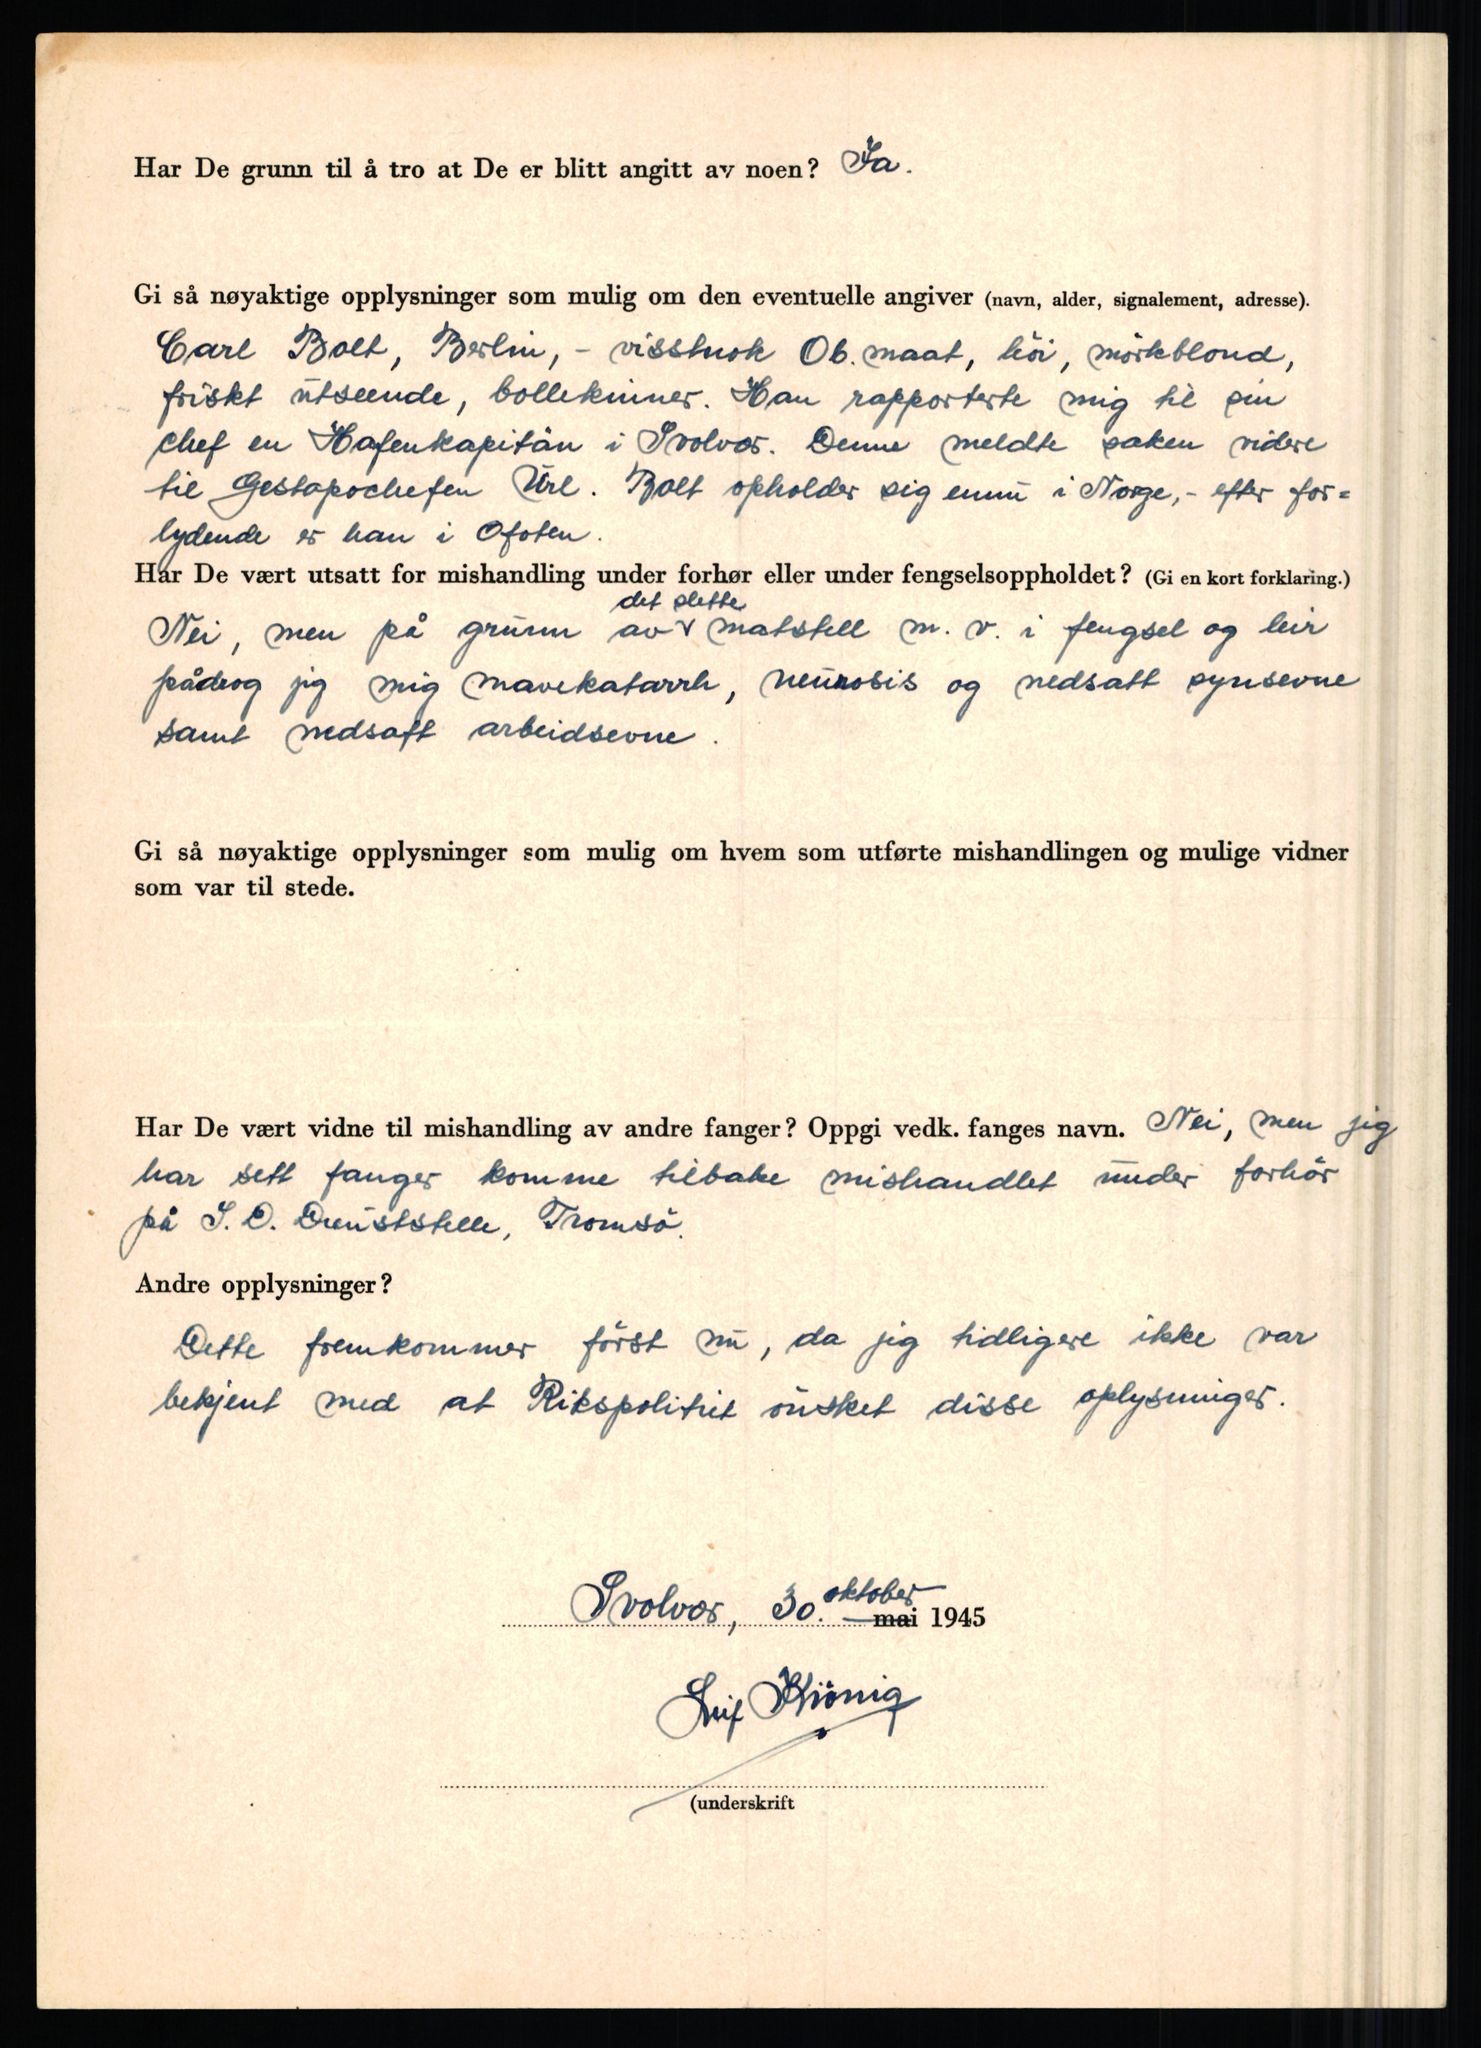 Har De grunn til å tro at De er blitt angitt av noen? Ja.
Gi så nøyaktige opplysninger som mulig om den eventuelle angiver (navn, alder, signalement, adresse).
Carl Bolt, Berlin, - visstnok Ob. maat, höi, mörkblond,
friskt utseende, bollekinner. Han rapporterte mig til sin
chef en Hafenkapitän i Svolvær. Denne meldte saken videre
til Gestapochefen Url. Bolt opholder sig ennu i Norge, - efter for=
lydende er han i Ofoten.
Har De vært utsatt for mishandling under forhør eller under fengselsoppholdet? (Gi en kort forklaring.)
det slette
Nei, men på grunn av v matstell m. v. i fengsel og leir
pådrog jig mig mavekatarrh, neurosis og nedsatt synsevne
samt nedsatt arbeidsevne.
Gi så nøyaktige opplysninger som mulig om hvem som utførte mishandlingen og mulige vidner
som var til stede.
Har De vært vidne til mishandling av andre fanger? Oppgi vedk. fanges navn. Nei, men jig
har sett fanger komme tilbake mishandlet under forhör
på S. D. Dienststelle, Tromsö.
Andre opplysninger?
Dette fremkommer först nu, da jig tidligere ikke var
bekjent med at Rikspolitiet önsket disse oplysninger.
oktober
Svolvær, 30. mai 1945
Leif Kiönig
(underskrift